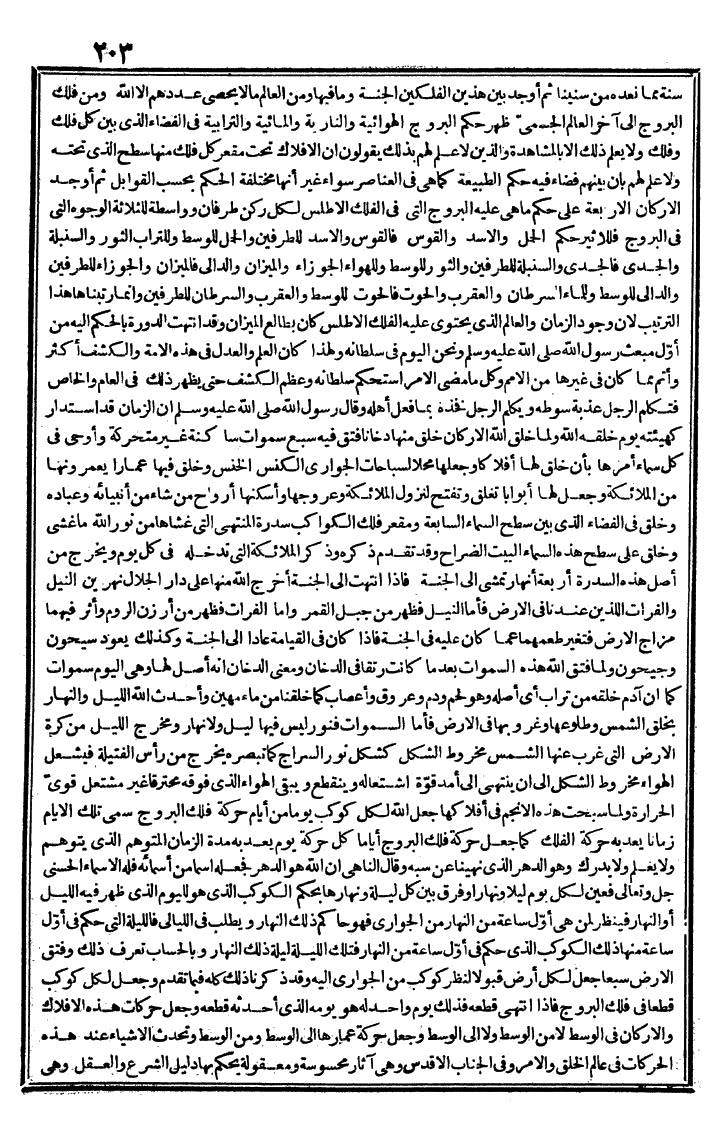 ٢٠٣
سنة مما نعده من سنيننا ثم أوجد بين هذين الفلكين الجنة وما فيها ومن العالم ما لا يحصى عددهم الا الله ومن فلك
البروج الى آخر العالم الجسمى ظهر حكم البروج الهوائية والنارية والمائية والترابية فى الفضاء الذى بين كل فلك
وفلك ولا يعلم ذلك الا بالمشاهدة والذين لا علم لهم بذلك يقولون ان الافلاك تحت مقعر كل فلك منها سطح الذى تحته
ولا علم لهم بان بينهم فضاء فيه حكم الطبيعة كما هى فى العناصر سواء غير أنها مختلفة الحكم بحسب القوابل ثم أوجد
الاركان الاربعة على حكم ما هى عليه البروج التى فى الفلك الاطلس لكل ركن طرفان وواسطة للثلاثة الوجوه التى
فى البروج فللاثير حكم الحمل والاسد والقوس فالقوس والاسد للطرفين والحمل للوسط وللتراب الثور والسنبلة
والجدى فالجدى والسنبلة للطرفين والثور للوسط وللهواء الجوزاء والميزان والدالى فالميزان والجوزاء للطرفين
والدالى للوسط وللماء السرطان والعقرب والحوت فالحوت للوسط والعقرب والسرطان للطرفين وانما رتبناها هذا
الترتيب لان وجود الزمان والعالم الذى يحتوى عليه الفلك الاطلس كان بطالع الميزان وقد انتهت الدورة بالحكم اليه من
أوّل مبعث رسول الله صلى الله عليه وسلم ونحن اليوم فى سلطانه ولهذا كان العلم والعدل فى هذه الامة والكشف أكثر
وأتم مما كان فى غيرها من الامم وكل ما مضى الامر استحكم سلطانه وعظم الكشف حتى يظهر ذلك فى العام والخاص
فتكلم الرجل عذبة سوطه ويكلم الرجل فخذه بما فعل أهله وقال رسول الله صلى الله عليه وسلم ان الزمان قد استدار
كهيئته يوم خلقه الله ولما خلق الله الاركان خلق منها دخانا فتق فيه سبع سموات ساكنة غير متحركة وأوحى فى
كل سماء أمرها بأن خلق لها أفلاكا وجعلها محلا لسباحات الجوارى الكنس الخنس وخلق فيها عمارا يعمرونها
من الملائكة وجعل لها أبوابا تغلق وتفتح لنزول الملائكة وعروجها وأسكنها أرواح من شاء من أنبيائه وعباده
وخلق فى الفضاء الذى بين سطح السماء السابعة ومقعر فلك الكواكب سدرة المنتهى التى غشاها من نور الله ما غشى
وخلق على سطح هذه السماء البيت الضراح وقد تقدم ذكره وذكر الملائكة التى تدخله فى كل يوم ويخرج من
أصل هذه السدرة أربعة أنهار تمشى الى الجنة فاذا انتهت الى الجنة أخرج الله منها على دار الجلال نهرين النيل
والفرات اللذين عندنا فى الارض فأما النيل فظهر من جبل القمر واما الفرات فظهر من أرزن الروم وأثر فيهما
مزاج الارض فتغير طعمهما عما كان عليه فى الجنة فاذا كان فى القيامة عادا الى الجنة وكذلك يعود سيحون
وجيحون ولما فتق الله هذه السموات بعد ما كانت رتقا فى الدخان ومعنى الدخان انه أصل لها وهى اليوم سموات
كما ان آدم خلقه من تراب أى أصله وهو لحم ودم وعروق وأعصاب كما خلقنا من ماء مهين وأحدث الله الليل والنهار
بخلق الشمس وطلوعها وغروبها فى الارض فأما السموات فنور ليس فيها ليل ولا نهار ومخرج الليل من كرة
الارض التى غرب عنها الشمس مخروط الشكل كشكل نور السراج كما تبصره يخرج من رأس الفتيلة فيشعل
الهواء مخروط الشكل الى ان ينتهى الى أمد قوّة اشتعاله وينقطع ويبقى الهواء الذى فوقه محترقا غير مشتعل قوىّ
الحرارة ولما سبحت هذه الانجم فى أفلاكها جعل الله لكل كوكب يوما من أيام حركة فلك البروج سمى تلك الايام
زمانا يعد به حركة الفلك كما جعل حركة فلك البروج أياما كل حركة يوم يعد به مدة الزمان المتوهم الذى يتوهم
ولا يعلم ولا يدرك وهو الدهر الذى نهينا عن سبه وقال الناهى ان الله هو الدهر فجعله اسما من أسمائه فله الاسماء الحسنى
جل وتعالى فعين لكل يوم ليلا ونهارا وفرق بين كل ليلة ونهارها بحكم الكوكب الذى هو لليوم الذى ظهر فيه الليل
أو النهار فينظر لمن هى أوّل ساعة من النهار من الجوارى فهو حاكم ذلك النهار ويطلب فى الليالى فالليلة التى حكم فى أوّل
ساعة منها ذلك الكوكب الذى حكم فى أوّل ساعة من النهار فتلك الليلة ليلة ذلك النهار وبالحساب تعرف ذلك وفتق
الارض سبعا جعل لكل أرض قبولا لنظر كوكب من الجوارى اليه وقد ذكرنا ذلك كله فيما تقدم وجعل لكل كوكب
قطعا فى فلك البروج فاذا انتهى قطعه فذلك يوم واحد له هو يومه الذى أحدثه قطعه وجعل حركات هذه الافلاك
والاركان فى الوسط لا من الوسط ولا الى الوسط وجعل حركة عمارها الى الوسط ومن الوسط وتحدث الاشياء عند هذه
الحركات فى عالم الخلق والامر وفى الجناب الاقدس وهى آثار محسوسة ومعقولة يحكم بها دليلى الشرع والعقل وهى